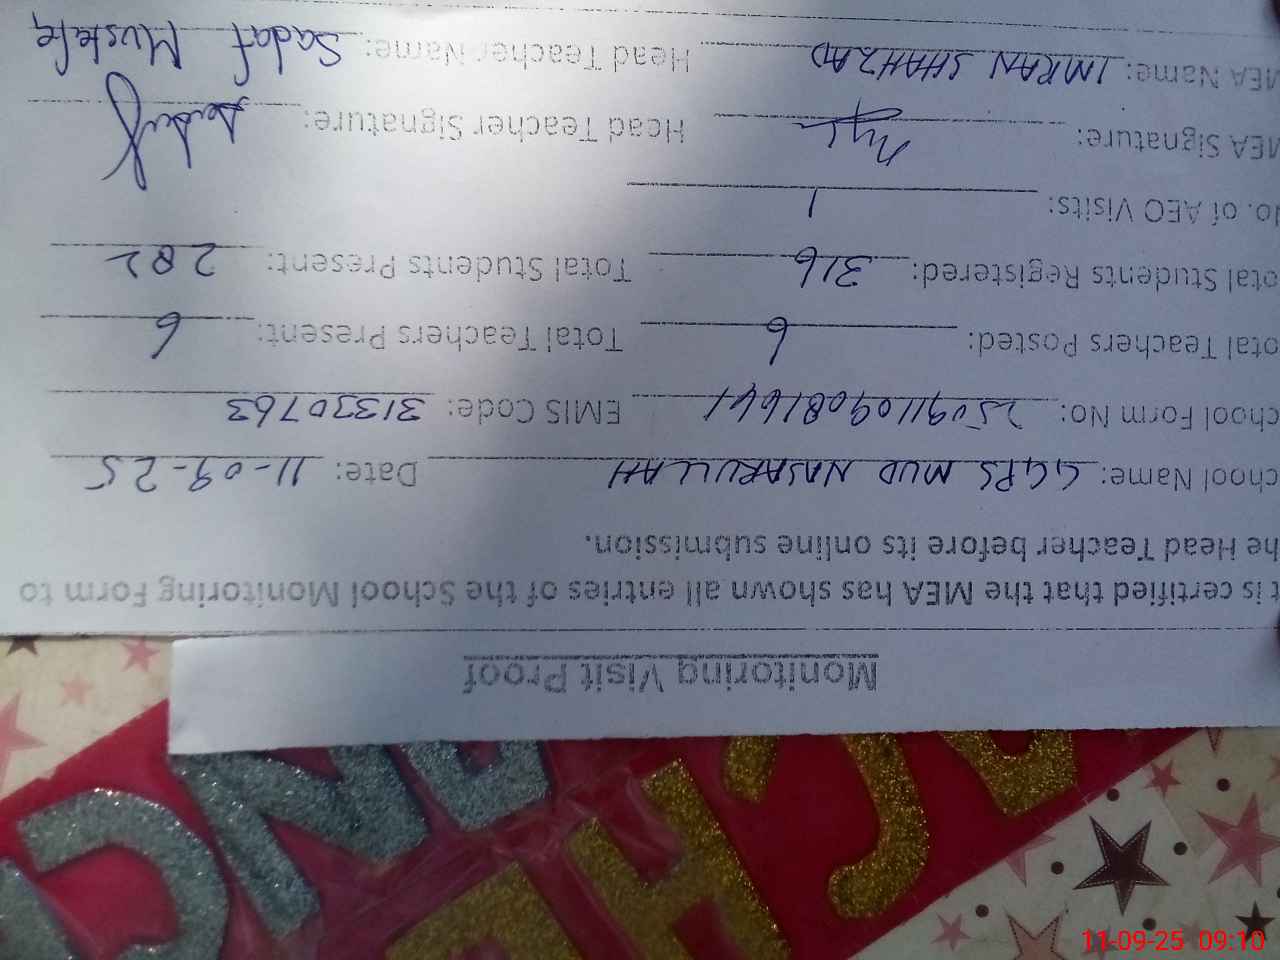 Monitoring Visit Proof
t is certified that the MEA has shown all entries of the School Monitoring Form to
he Head Teacher before its online submission.
chool Name: GGPS MUD NASARULLAH Date: 11-09-25
chool Form No: 25091109081641 EMIS Code: 31330763
otal Teachers Posted: 6 Total Teachers Present: 6
otal Students Registered: 316 Total Students Present: 282
o. of AEO Visits: 1
MEA Signature: Head Teacher Signature:
MEA Name: IMRAN SHAHZAD Head Teacher Name: Sadaf Mustafa
11-09-25 09:10